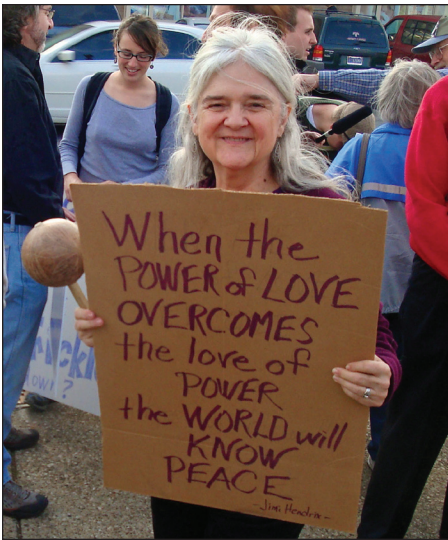 When the
POWER of LOVE
OVERCOMES
the love of
POWER
the WORLD will
KNOW
PEACE
-Jimi Hendrix-